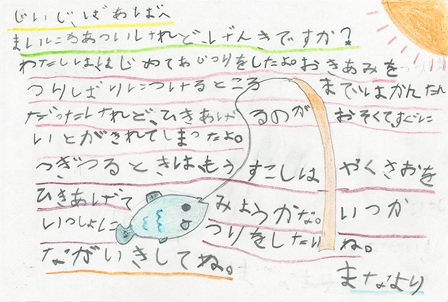 じいじ、ばあばへ
まいにちあついけれど、げんきですか？
わたしははじめてあじつりをしたよ。おきあみを
つりばりにつけるところまではかんたん
だったけれど、ひきあげるのがおそくてすぐに
いとがきれてしまったよ。
つぎつるときは、もうすこしはやくさおを
ひきあげてみようかな。いつか
いっしょにつりをしたいね。
ながいきしてね。
まなより